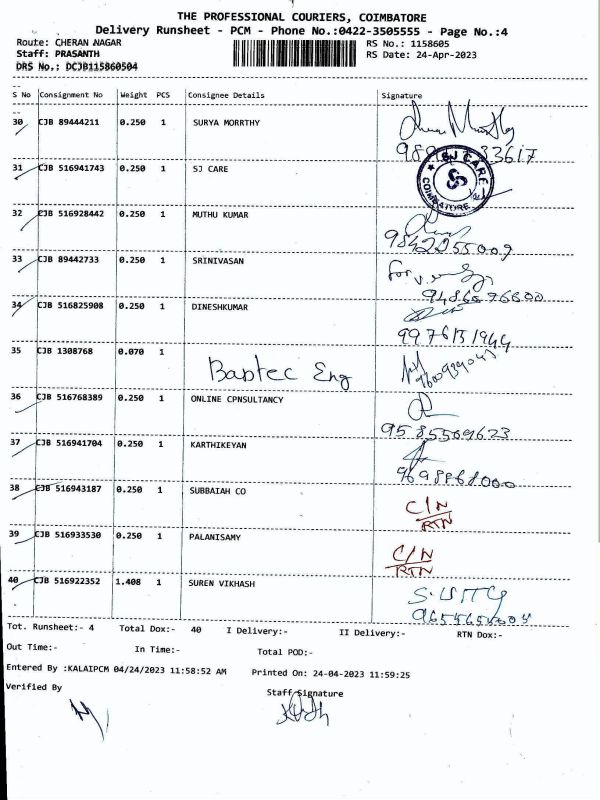 THE PROFESSIONAL COURIERS, COIMBATORE
Delivery Runsheet - PCM - Phone No.:0422-3505555 - Page No.:4
Route: CHERAN NAGAR RS No.: 1158605
Staff: PRASANTH RS Date: 24-Apr-2023
DRS No.: DCJB115860504
S No Consignment No Weight PCS Consignee Details Signature
30 CJB 89444211 0.250 1 SURYA MORRTHY
31 CJB 516941743 0.250 1 SJ CARE
SJ CARE
COIMBATORE
32 CJB 516928442 0.250 1 MUTHU KUMAR
9842255009
33 CJB 89442733 0.250 1 SRINIVASAN
for
34 CJB 516825908 0.250 1 DINESHKUMAR
35 CJB 1308768 0.070 1
Bastec Eng
36 CJB 516768389 0.250 1 ONLINE CPNSULTANCY
9585509623
37 CJB 516941704 0.250 1 KARTHIKEYAN
38 CJB 516943187 0.250 1 SUBBAIAH CO C/N
RTN
39 CJB 516933530 0.250 1 PALANISAMY C/N
RTN
40 CJB 516922352 1.408 1 SUREN VIKHASH
Tot. Runsheet:- 4 Total Dox:- 40 I Delivery:- II Delivery:- RTN Dox:-
Out Time:- In Time:- Total POD:-
Entered By :KALAIPCM 04/24/2023 11:58:52 AM Printed On: 24-04-2023 11:59:25
Verified By Staff Signature